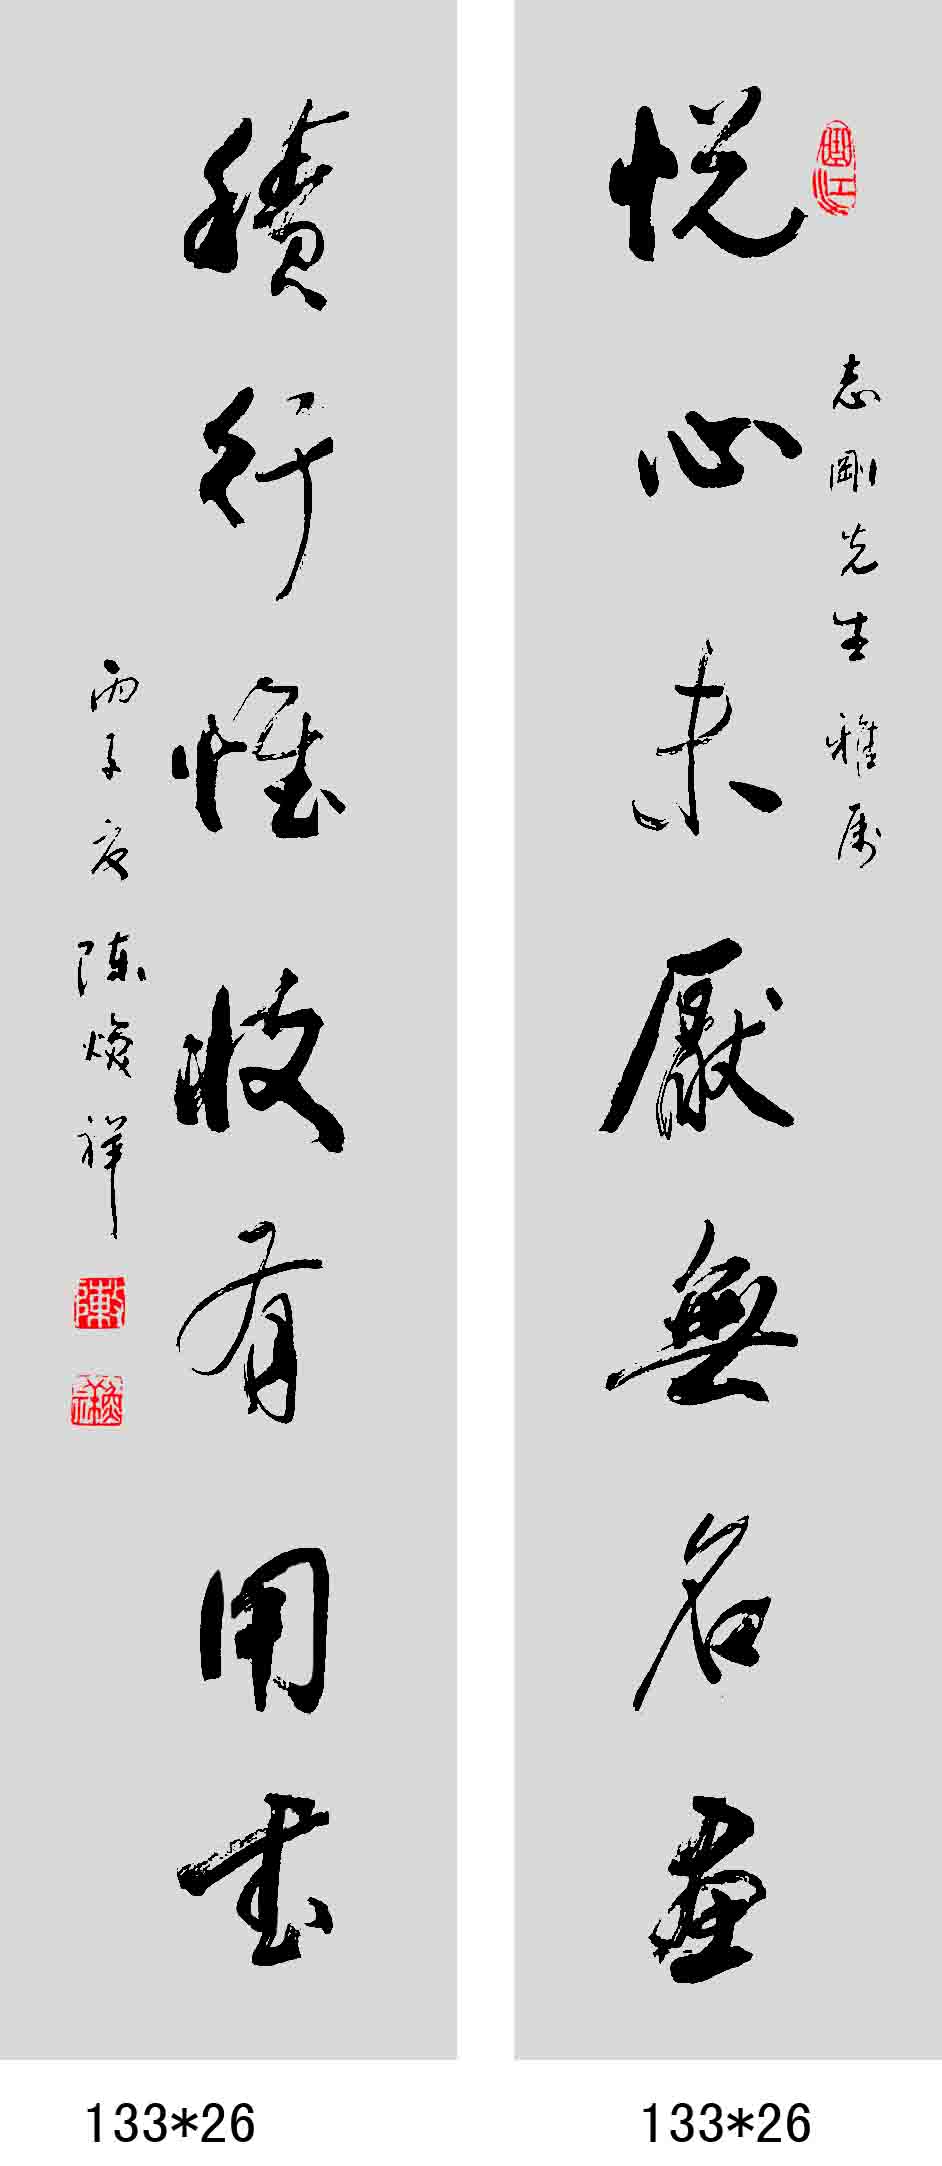 悦心未厭無名畫
志剛先生雅属
積行惟收有用書
丙子夏陈焕祥
133*26
133*26